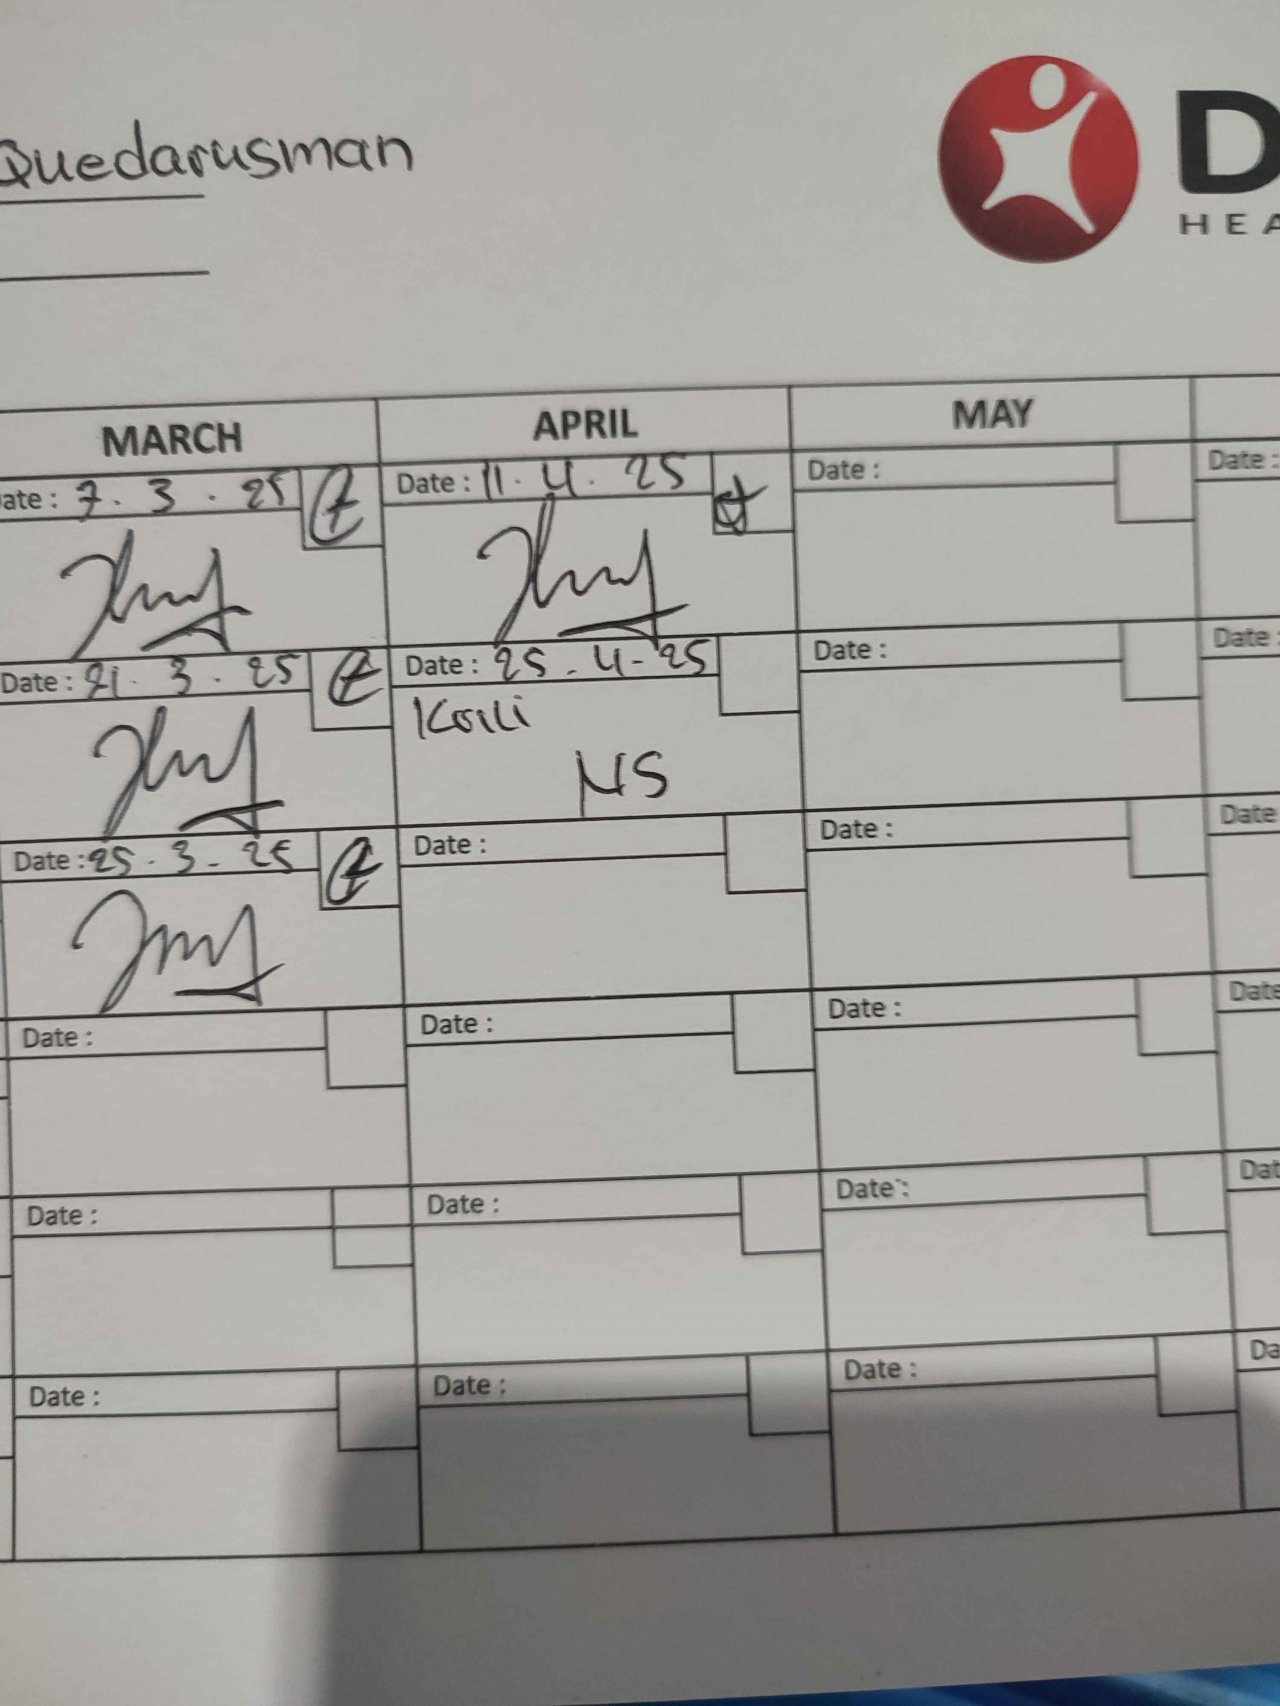 Quedarusman
D
HEA
MARCH APRIL MAY
ate : 7. 3. 25 Date : 11. 4. 25 Date : Date :
Date : 21. 3. 25 Date : 25. 4-25 Date : Date :
NS
Date : 25. 3- 25 Date : Date : Date
Date : Date : Date : Date
Date : Date : Date : Dat
Date : Date : Date : Da